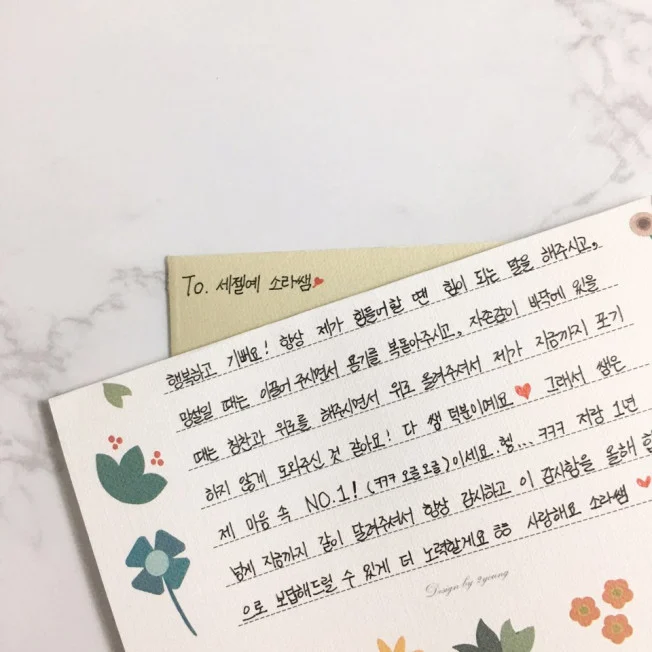 To. 세젤예 소라쌤
행복하고 기뻐요! 항상 제가 힘들어할 땐 힘이 되는 말을 해주시고,
망설일 때는 이끌어 주시면서 용기를 북돋아주시고, 자존감이 바닥에 있을
때는 칭찬과 위로를 해주시면서 위로 올려주셔서 제가 지금까지 포기
하지 않게 도와주신 것 같아요! 다 쌤 덕분이예요 그래서 쌤은
제 마음 속 NO.1! (ㅋㅋㅋ 오글오글)이세요. 헿... ㅋㅋㅋ 저랑 1년
넘게 지금까지 같이 달려주셔서 항상 감사하고 이 감사함을 올해 합
으로 보답해드릴 수 있게 더 노력할게요 ㅎㅎ 사랑해요 소라쌤
Design by 2young